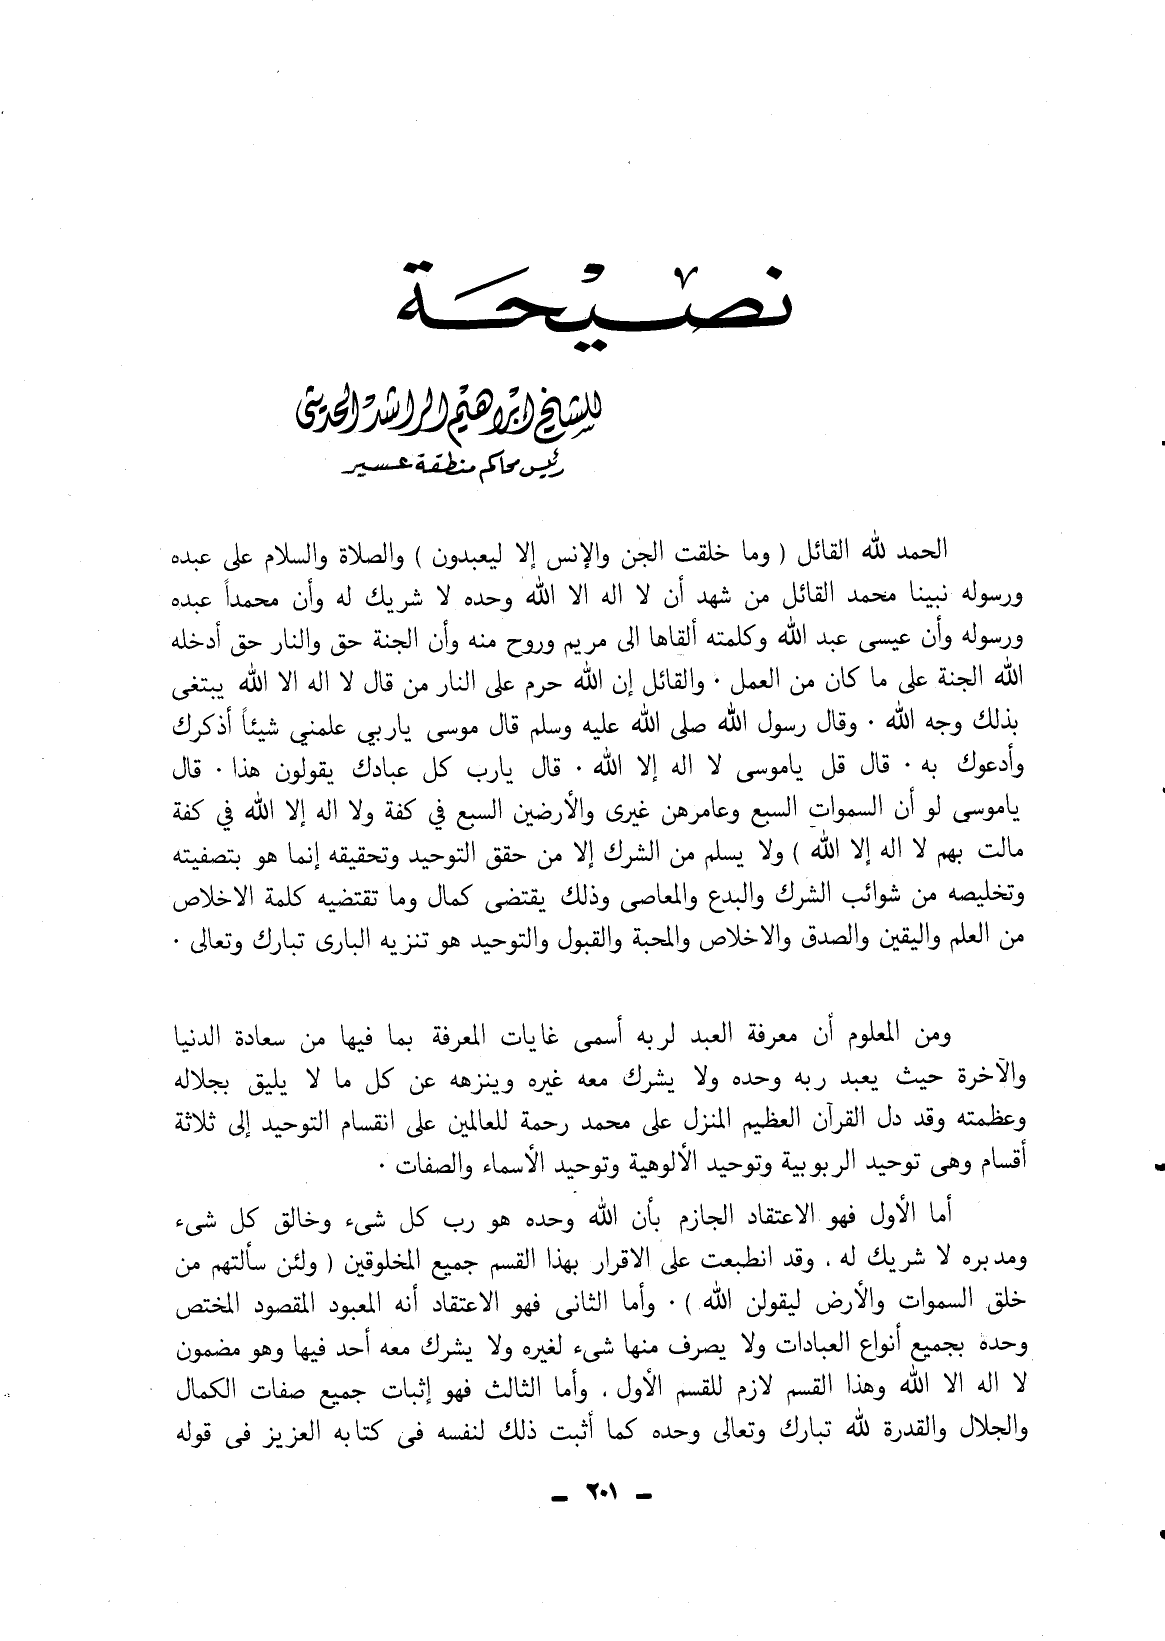 نصيحة
للشيخ ابراهيم الراشد الحديثى
رئيس محاكم منطقة عسير
الحمد لله القائل ( وما خلقت الجن والإنس إلا ليعبدون ) والصلاة والسلام على عبده
ورسوله نبينا محمد القائل من شهد أن لا اله الا الله وحده لا شريك له وأن محمداً عبده
ورسوله وأن عيسى عبد الله وكلمته ألقاها الى مريم وروح منه وأن الجنة حق والنار حق أدخله
الله الجنة على ما كان من العمل ٠ والقائل إن الله حرم على النار من قال لا اله الا الله يبتغى
بذلك وجه الله ٠ وقال رسول الله صلى الله عليه وسلم قال موسى ياربي علمني شيئاً أذكرك
وأدعوك به ٠ قال قل ياموسى لا اله إلا الله ٠ قال يارب كل عبادك يقولون هذا ٠ قال
ياموسى لو أن السموات السبع وعامرهن غيرى والأرضين السبع في كفة ولا اله إلا الله في كفة
مالت بهم لا اله إلا الله ) ولا يسلم من الشرك إلا من حقق التوحيد وتحقيقه إنما هو بتصفيته
وتخليصه من شوائب الشرك والبدع والمعاصى وذلك يقتضى كمال وما تقتضيه كلمة الاخلاص
من العلم واليقين والصدق والاخلاص والمحبة والقبول والتوحيد هو تنزيه البارى تبارك وتعالى ٠
ومن المعلوم أن معرفة العبد لربه أسمى غايات المعرفة بما فيها من سعادة الدنيا
والآخرة حيث يعبد ربه وحده ولا يشرك معه غيره وينزهه عن كل ما لا يليق بجلاله
وعظمته وقد دل القرآن العظيم المنزل على محمد رحمة للعالمين على انقسام التوحيد إلى ثلاثة
أقسام وهى توحيد الربوبية وتوحيد الألوهية وتوحيد الأسماء والصفات ٠
أما الأول فهو الاعتقاد الجازم بأن الله وحده هو رب كل شىء وخالق كل شىء
ومدبره لا شريك له . وقد انطبعت على الاقرار بهذا القسم جميع المخلوقين ( ولئن سألتهم من
خلق السموات والأرض ليقولن الله ) ٠ وأما الثانى فهو الاعتقاد أنه المعبود المقصود المختص
وحده بجميع أنواع العبادات ولا يصرف منها شىء لغيره ولا يشرك معه أحد فيها وهو مضمون
لا اله الا الله وهذا القسم لازم للقسم الأول . وأما الثالث فهو إثبات جميع صفات الكمال
والجلال والقدرة لله تبارك وتعالى وحده كما أثبت ذلك لنفسه فى كتابه العزيز فى قوله
ـ ٢٠١ ـ